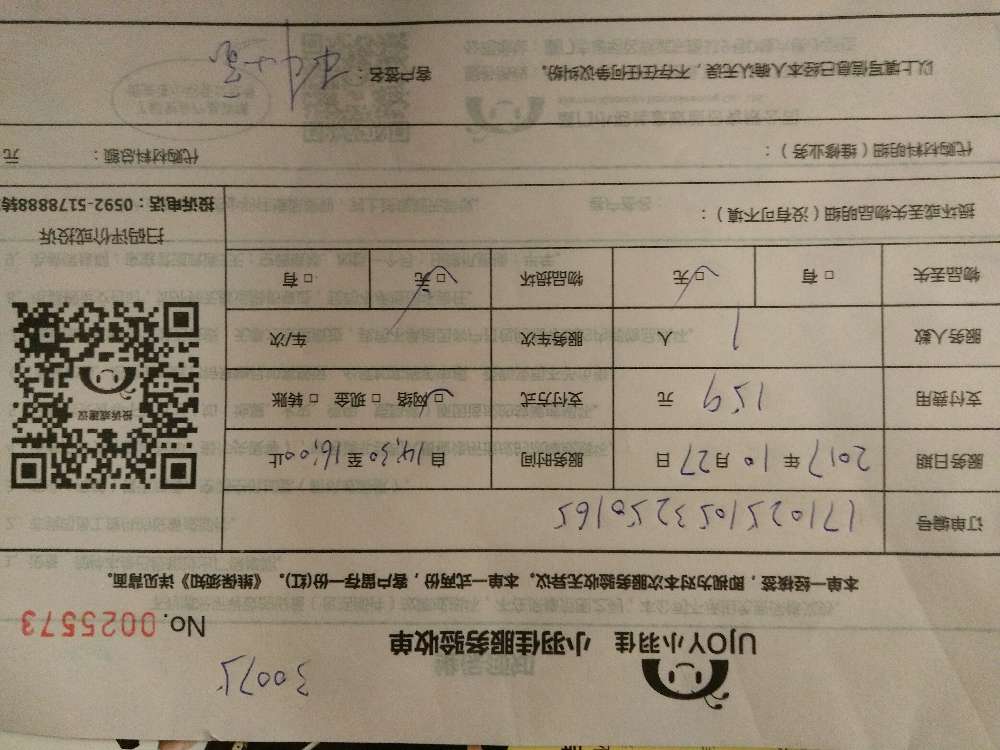 30075
UJOY小羽佳 小羽佳服务验收单
No.0025573
本单一经接签，即视为对本次服务验收无异议。本单一式两份，客户留存一份(红)。《维保须知》详见背面。
订单编号 171025105325016S
服务日期 2017 年 10 月 27 日 服务时间 自 14:30 至 16:00 止
支付费用 159 元 支付方式 □ 网络 □ 现金 □ 转账
服务人数 1 人 服务车次 车/次
物品丢失 □ 有 □ 无 物品损坏 □ 无 □ 有
投诉或建议
扫码评价或投诉
投诉电话：0592-5178888转
损坏或丢失物品明细（没有可不填）：
代购材料明细（维修业务）： 代购材料总额： 元
以上填写信息已经本人确认无误，不存在任何争议纠纷。 客户签名：